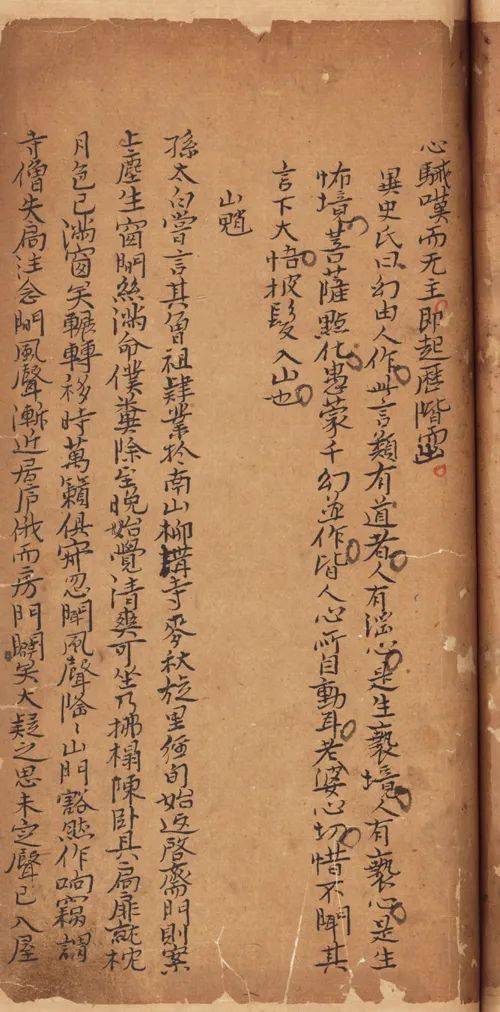 心駴嘆而无主即起歷階而出
異史氏曰幻由人作此言類有道者人有淫心是生褻境人有褻心是生
怖境菩薩點化愚蒙千幻並作皆人心所自動耳老婆心切惜不聞其
言下大悟披髮入山也
山魈
孫太白嘗言其曾祖肄業於南山柳溝寺麥秋旋里經旬始返啓齋門則案
上塵生窗間絲滿命僕糞除至晚始覺清爽可坐乃拂榻陳卧具扃扉就枕
月色已滿窗矣輾轉移時萬籟俱寂忽聞風聲隆〻山門豁然作响竊謂
寺僧失扃注念間風聲漸近居庐俄而房門闢矣大疑之思未定聲已入屋